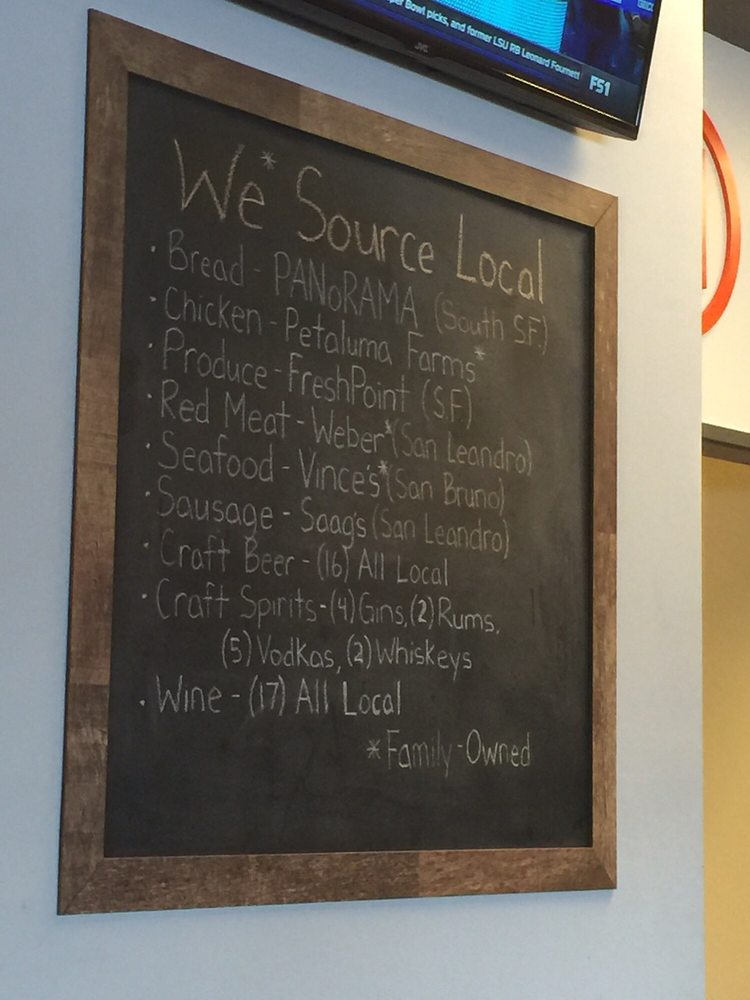 per Bowl picks, and former LSU RB Leonard Fournett
FS1
JVC
We* Source Local
· Bread - PANoRAMA (South S.F.)
· Chicken - Petaluma Farms*
· Produce - FreshPoint (S.F)
· Red Meat - Weber* (San Leandro)
· Seafood - Vince's* (San Bruno)
· Sausage - Saag's (San Leandro)
· Craft Beer - (16) All Local
· Craft Spirits - (4) Gins, (2) Rums,
(5) Vodkas, (2) Whiskeys
· Wine - (17) All Local
* Family-Owned